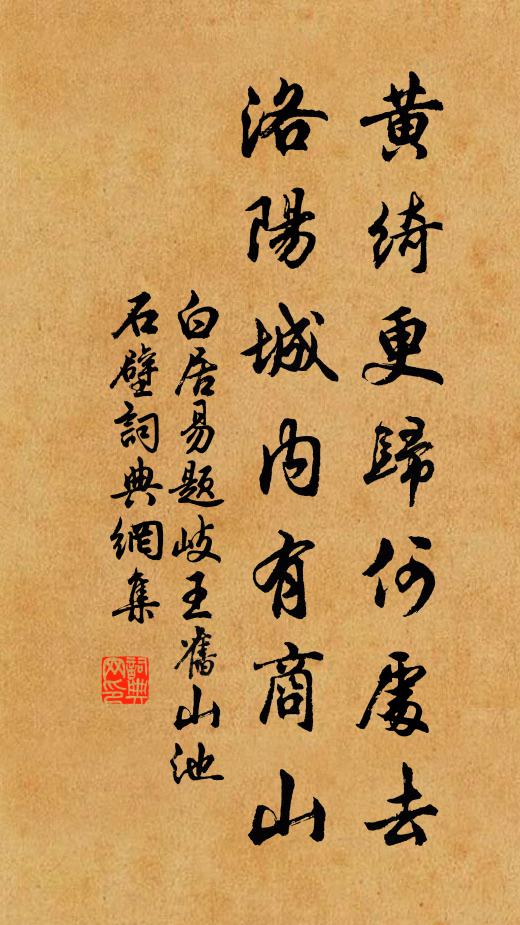 黃綺更歸何處去
洛陽城內有商山
白居易題岐王舊山池
石壁詞典網集
詞典網印